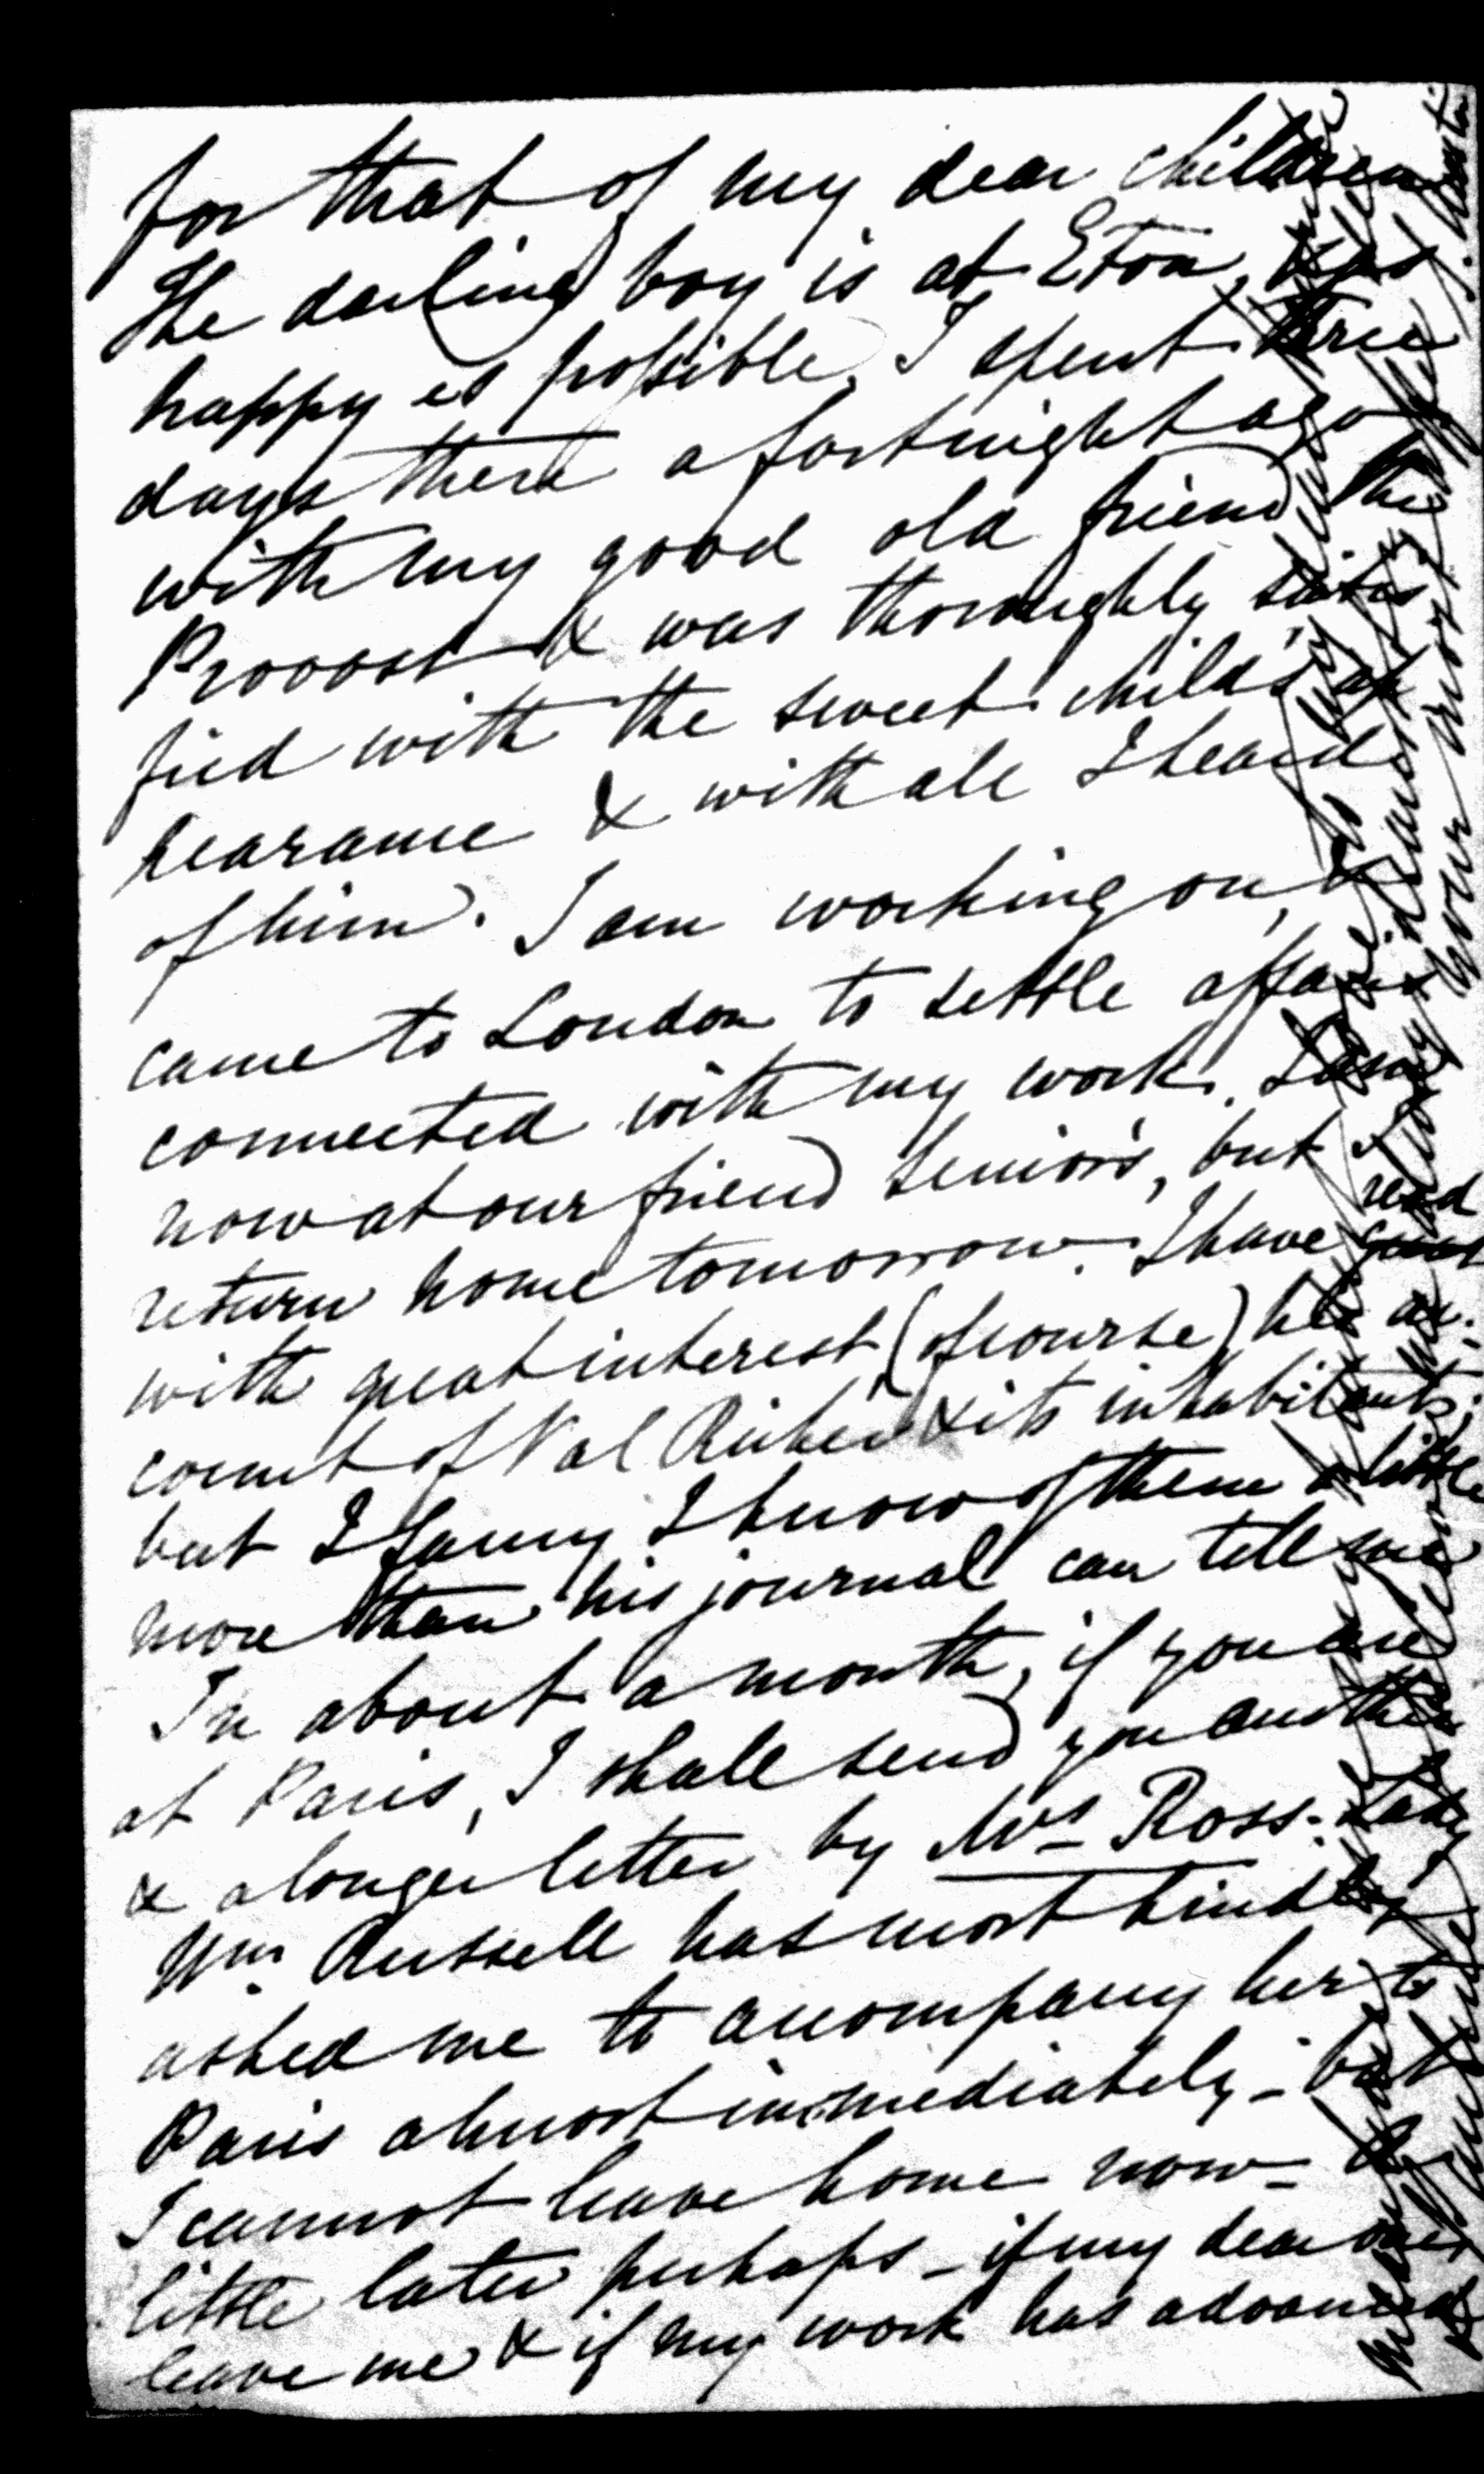 for that of my dear children
The darling boy is at Eton, & as
happy as possible. I spent three
days there a fortnight ago
with my good old friend the
Provost & was thoroughly satis
fied with the sweet child's ap
pearance & with all I heard
of him. I am working on, &
came to London to settle affairs
connected with my work. I am
now at our friend Senior's, but I
return home tomorrow. I have read
with great interest (of course) his ac.
count of Val Richer & its inhabitants
but I fancy I know of them a little
more than his journal can tell me
In about a month, if you are
at Paris, I shall send you another
& a longer letter by Mrs Ross. Lady
Wm. Russell has most kindly
asked me to accompany her to
Paris almost immediately - but
I cannot leave home now - A
little later perhaps - if my dear ones
leave me & if my work has advanced